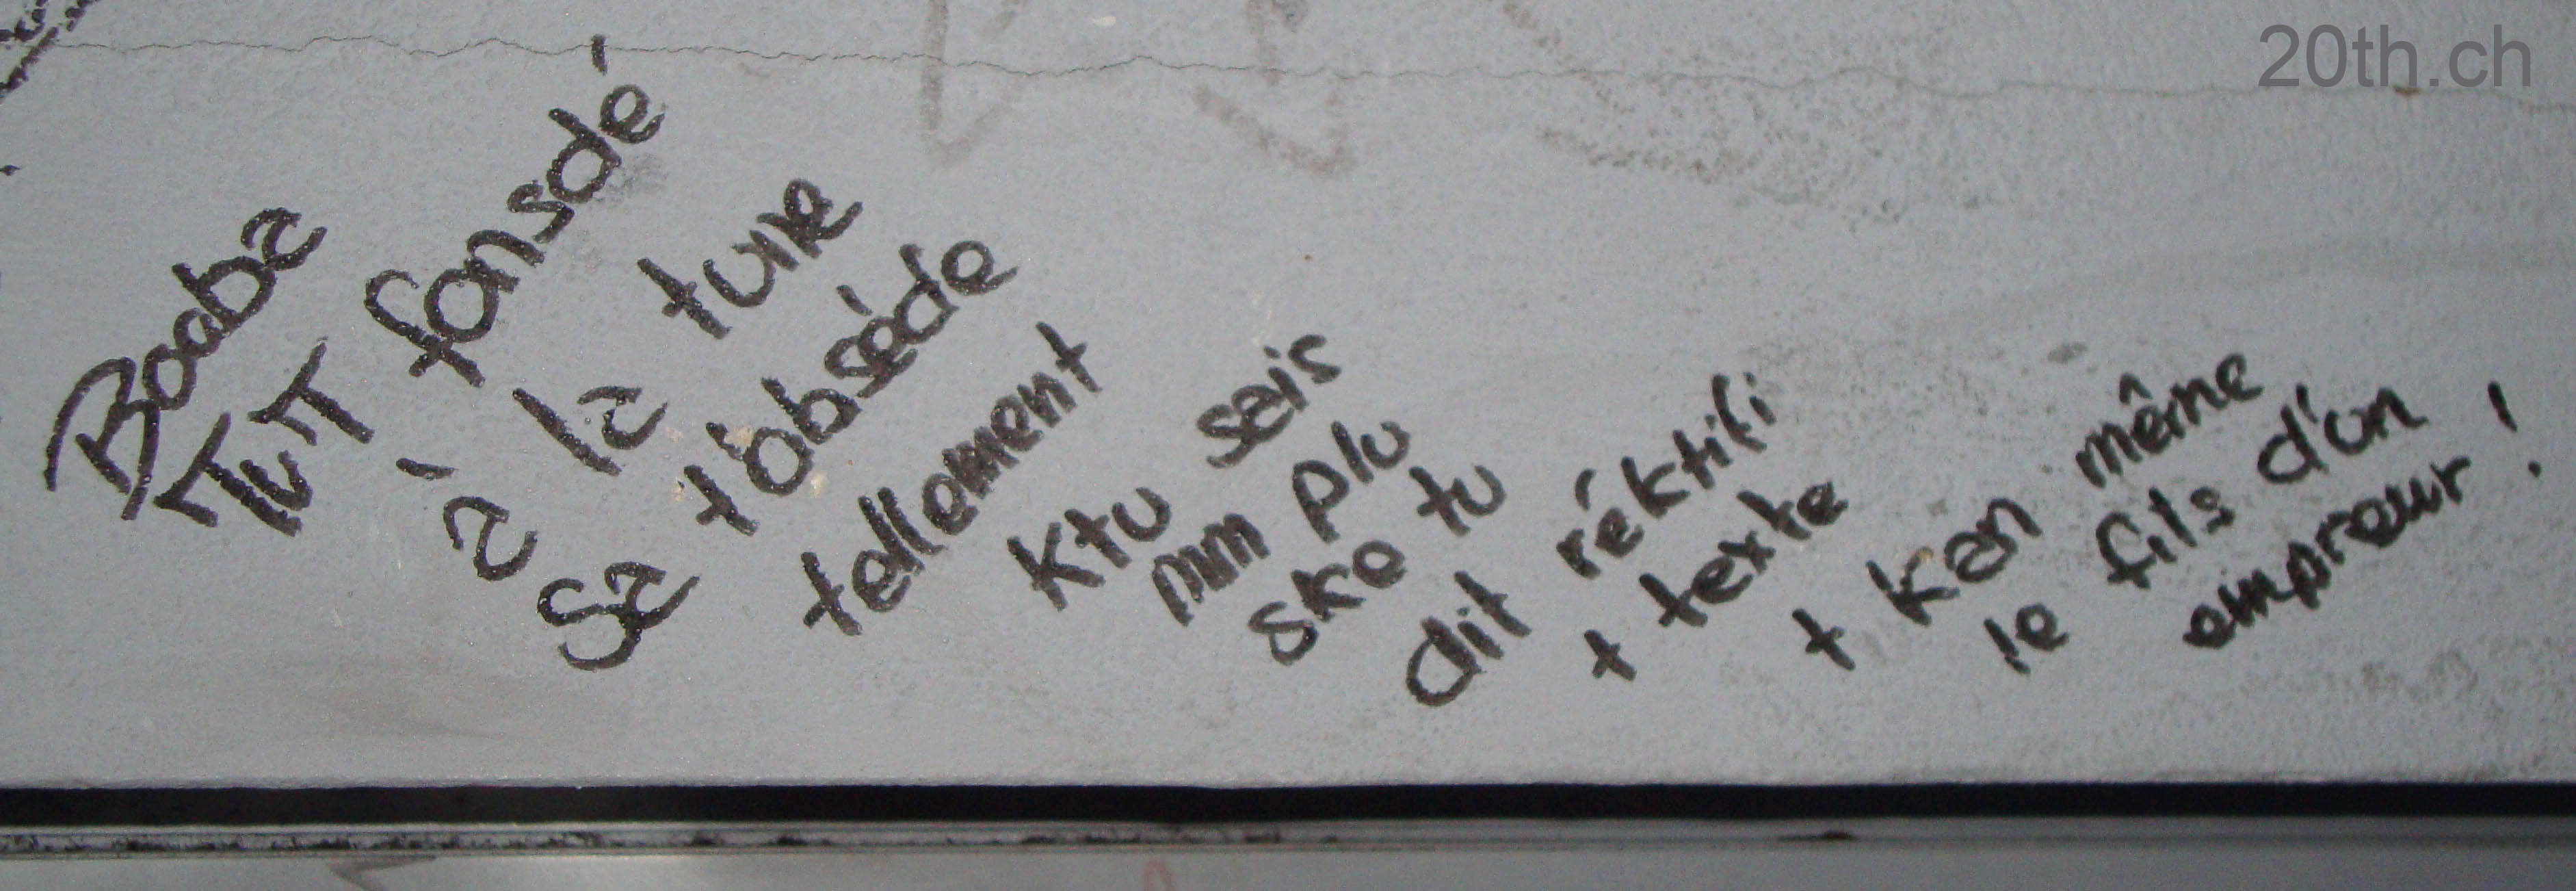 20th.ch
Booba
TuTT fonsdé
à la tune
Sa t'obséde
tellement
Ktu sais
mm plu
ske tu
dit réktifi
t texte
t kan même
le fils d'un
empreur !